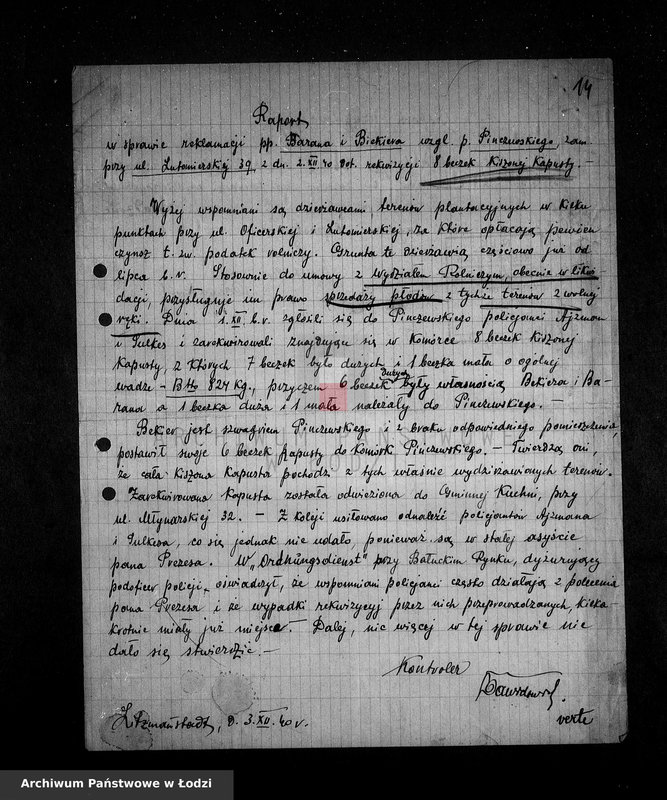 14
Raport
w sprawie reklamacji pp. Barana i Bekiera wzgl. p. Pinczewskiego, zam.
przy ul. Lutomierskiej 39, z dn. 2.XII 40 dot. rekwizycji 8 beczek Kiszonej Kapusty. —
Wyżej wspomniani są dzierżawcami terenów plantacyjnych w kilku
punktach przy ul. Oficerskiej i Lutomierskiej, za które opłacają pewien
czynsz t. zw. podatek rolniczy. Grunta te dzierżawią częściowo już od
lipca b.r. Stosownie do umowy z Wydziałem Rolniczym, obecnie w likwi-
dacji, przysługuje im prawo sprzedaży płodów z tychże terenów z wolnej
ręki. Dnia 1.XII b.r. zgłosili się do Pinczewskiego policjanci Ajzman
i Sulkes i zarekwirowali znajdujące się w komórce 8 beczek kiszonej
Kapusty, z których 7 beczek było dużych i 1 beczka mała o ogólnej
wadze - Btto 824 Kg., przyczem 6 beczek dużych były własnością Bekiera i Ba-
rana a 1 beczka duża i 1 mała należały do Pinczewskiego. —
Bekier jest szwagrem Pinczewskiego i z braku odpowiedniego pomieszczenia
postawił swoje 6 beczek Kapusty do komórki Pinczewskiego. — Twierdzą oni,
że cała kiszona kapusta pochodzi z tych właśnie wydzierżawionych terenów.
Zarekwirowana kapusta została odwieziona do Gminnej Kuchni, przy
ul. Młynarskiej 32. — Z kolei usiłowano odnaleźć policjantów Ajzmana
i Sulkesa, co się jednak nie udało, ponieważ są w stałej asyście
pana Prezesa. W „Ordnungsdienst" przy Bałuckim Rynku, dyżurujący
podoficer policji, oświadczył, że wspomniani policjanci często działają z polecenia
pana Prezesa i że wypadki rekwizycji przez nich przeprowadzanych, kilka-
krotnie miały już miejsce. Dalej, nic więcej w tej sprawie nie
dało się stwierdzić. —
Kontroler
Litzmanstadt, d. 3.XII.40 r.
verte
Archiwum Państwowe w Łodzi